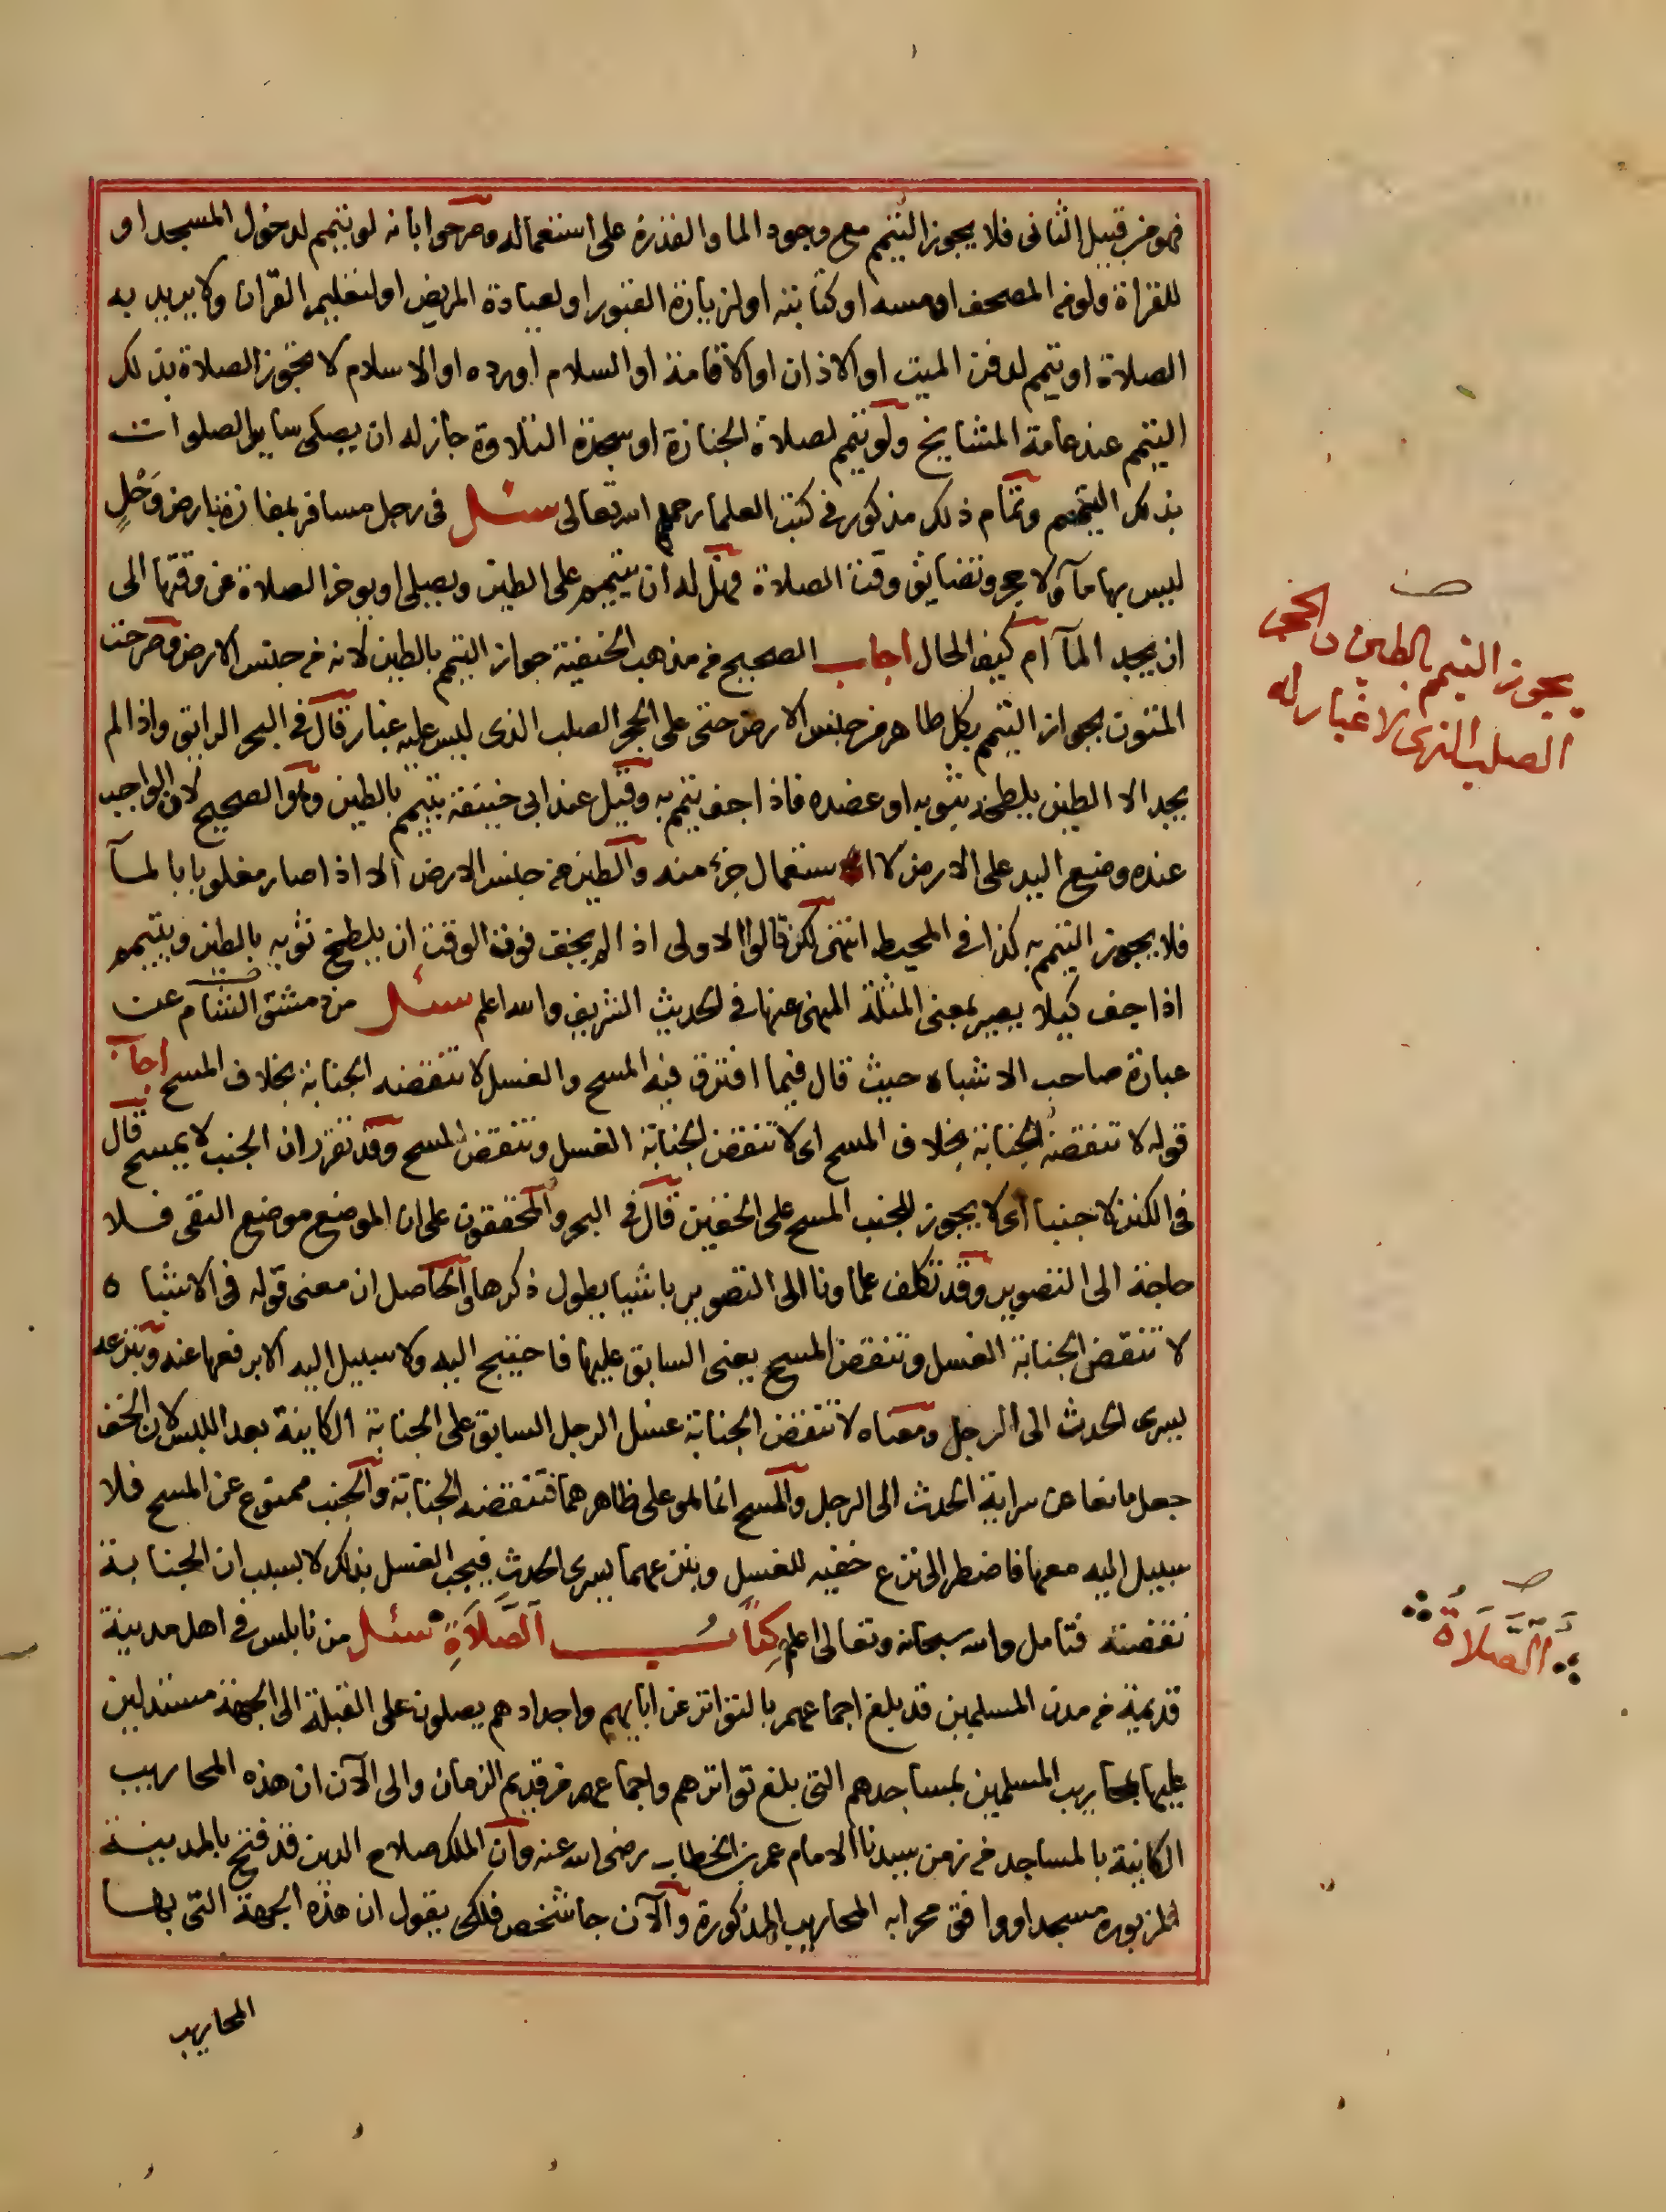 فهو من قبيل الثانى فلا يجوز التيمم مع وجود الما والقدرة على استعماله وصرحوا بانه لو تيمم لدخول المسجد او
للقراة ولو من المصحف او مسه او كتابته او لزيارة القبور او لعيادة المريض او لتعليم القران ولا يريد به
الصلاة او تيمم لدفن الميت او الاذان او الاقامة او السلام او رده او الاسلام لا تجوز الصلاة بذلك
التيمم عند عامة المشايخ ولو تيمم لصلاة الجنازة او سجدة التلاوة جاز له ان يصلى سايرالصلوات
بذلك التيمم وتمام ذلك مذكور فى كتب العلما رحمهم الله تعالى سئل فى رجل مسافر بمفازة بارض وَحْلٍ
ليس بها مآ ولا حجر وتضايق وقت الصلاة فهل له ان يتيمم على الطين ويصلى او يوخر الصلاة عن وقتها الى
ان يجد المآ ام كيف الحال اجاب الصحيح من مذهب الحنفية جواز التيمم بالطين لانه من جنس الارض وصرحت
المتون بجواز التيمم بكل طاهر من جنس الارض حتى على الحجر الصلب الذى ليس عليه غبار قال فى البحر الرايق واذا لم
يجد الا الطين يلطخ بثوبه او عضده فاذا جف تيمم به وقيل عند ابى حنيفة يتيمم بالطين وهو الصحيح لان الواجب
عنده وضع اليد على الارض لا استعمال جزء منه والطين من جنس الارض الا اذا صار مغلوبا بالمآ
فلا يجوز التيمم به كذا فى المحيط انتهى لكن قالوا الاولى اذا لم يخف فوت الوقت ان يلطخ ثوبه بالطين ويتيمم
اذا جف كيلا يصير بمعنى المثلة المنهى عنها فى الحديث الشريف والله اعلم سئل من دمشق الشام عن
عبارة صاحب الاشباه حيث قال فيما افترق فيه المسح والغسل لا تنقضه الجنابة بخلاف المسح اجاب
قوله لا تنقضه الجنابة بخلاف المسح اى لا تنقض الجنابة الغسل وتنقض المسح وقد تقرر ان الجنب لا يمسح قال
فى الكنز لا جنبا اى لا يجوز للجنب المسح على الخفين قال فى البحر والمحققون على ان الموضع موضع النفى فلا
حاجة الى التصوير وقد تكلف علماونا الى التصوير باشيا يطول ذكرها والحاصل ان معنى قوله فى الاشباه
لا تنقض الجنابة الغسل وتنقض المسح يعنى السابق عليها فاحتيج اليه ولا سبيل اليه الا برفعها عنه وبنزعه
يسرى الحدث الى الرجل ومعناه لا تنقض الجنابة غسل الرجل السابق على الجنابة الكاينة بعد اللبس لان الخف
جعل مانعا عن سراية الحدث الى الرجل والمسح انما هو على ظاهرهما فتنقضه الجنابة والجنب ممنوع عن المسح فلا
سبيل اليه معها فاضطر الى نزع خفيه للغسل وبنزعهما يسرى الحدث فيجب الغسل بذلك لا بسبب ان الجنابة
نقضته فتامل والله سبحانه وتعالى اعلم كِتَابُ الصَّلَاةِ سئل من نابلس فى اهل مدينة
قديمة من مدن المسلمين قد بلغ اجماعهم بالتواتر عن ابايهم واجدادهم يصلون على القبلة الى الجهة مستدلين
عليها بمحاريب المسلمين بمساجدهم التى بلغ تواترهم واجماعهم من قديم الزمان والى الآن ان هذه المحاريب
الكاينة بالمساجد من زمن سيدنا الامام عمر بن الخطاب رضى الله عنه وان الملك صلاح الدين قد فتح بالمدينة
المزبورة مسجدا ووافق محرابه المحاريب المذكورة والآن جا شخص فلكى يقول ان هذه الجهة التى بها
المحاريب
يجوز التيمم بالطين والحجر
الصلب الذى لا غبار له
الصَّلَاةُ